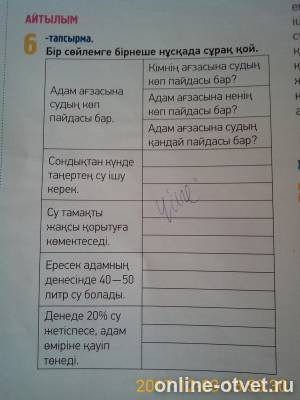 АЙТЫЛЫМ
6 -тапсырма.
Бір сөйлемге бірнеше нұсқада сұрақ қой.
Адам ағзасына
судың көп
пайдасы бар.
Кімнің ағзасына судың
көп пайдасы бар?
Адам ағзасына ненің
көп пайдасы бар?
Адам ағзасына судың
қандай пайдасы бар?
Сондықтан күнде
таңертең су ішу
керек.
Су тамақты
жақсы қорытуға
көмектеседі.
Ересек адамның
денесінде 40—50
литр су болады.
Денеде 20% су
жетіспесе, адам
өміріне қауіп
төнеді.
online-otvet.ru